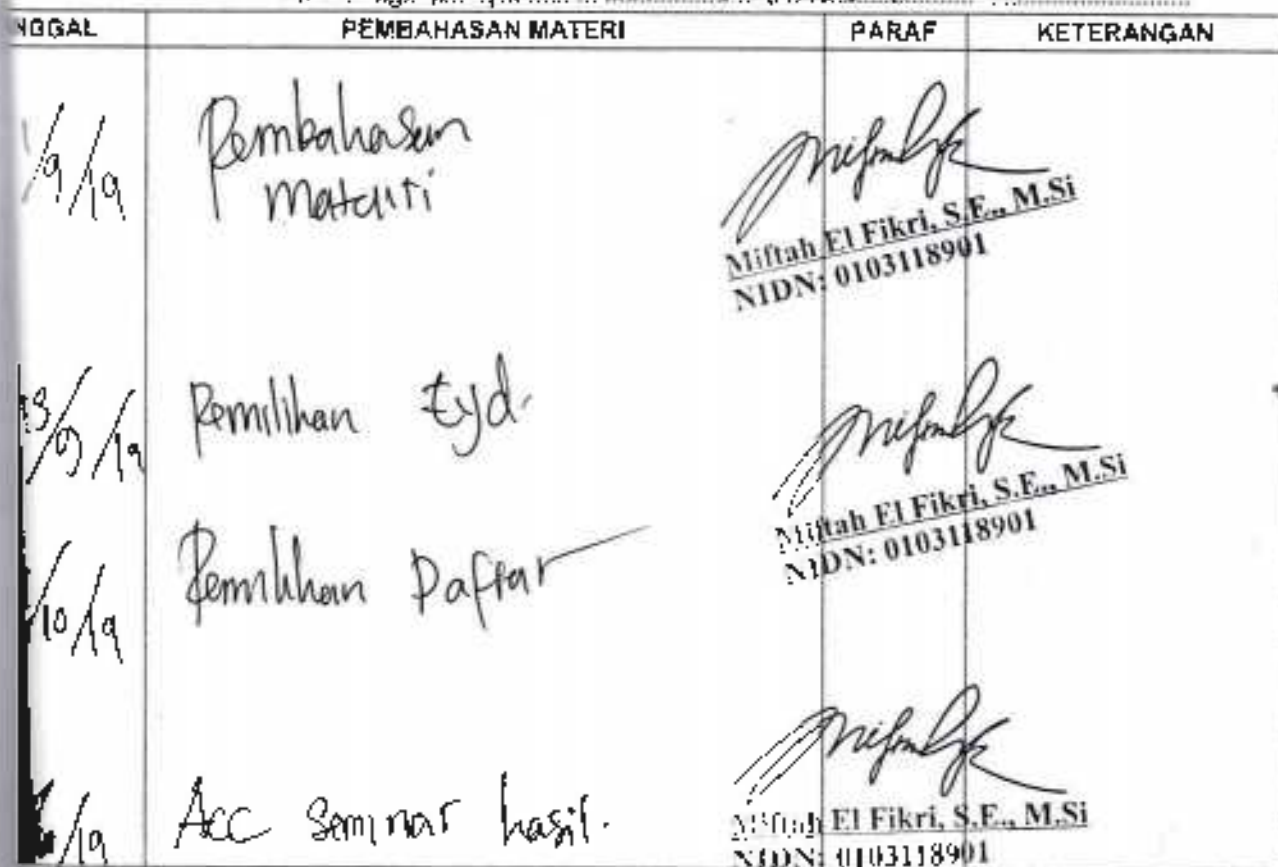 NGGAL PEMBAHASAN MATERI PARAF KETERANGAN
/9/19 Pembahasan
materi
Miftah El Fikri, S.E., M.Si
NIDN: 0103118901
/9/19 Pemilihan Eyd.
Miftah El Fikri, S.E., M.Si
NIDN: 0103118901
/10/19 Pemilihan Daftar
/19 Acc seminar hasil.
Miftah El Fikri, S.E., M.Si
NIDN: 0103118901